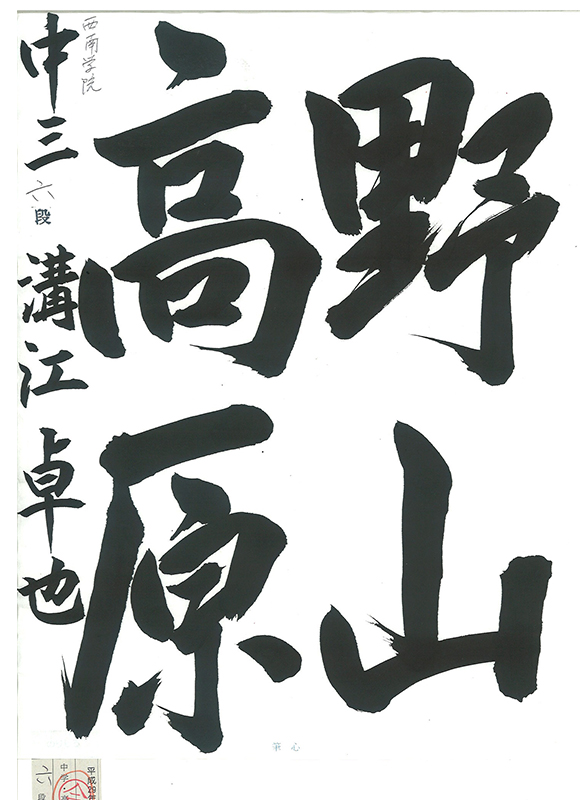 野山
高原
西南学院
中三 六段 溝江卓也
心筆
平成29年
中学
六段